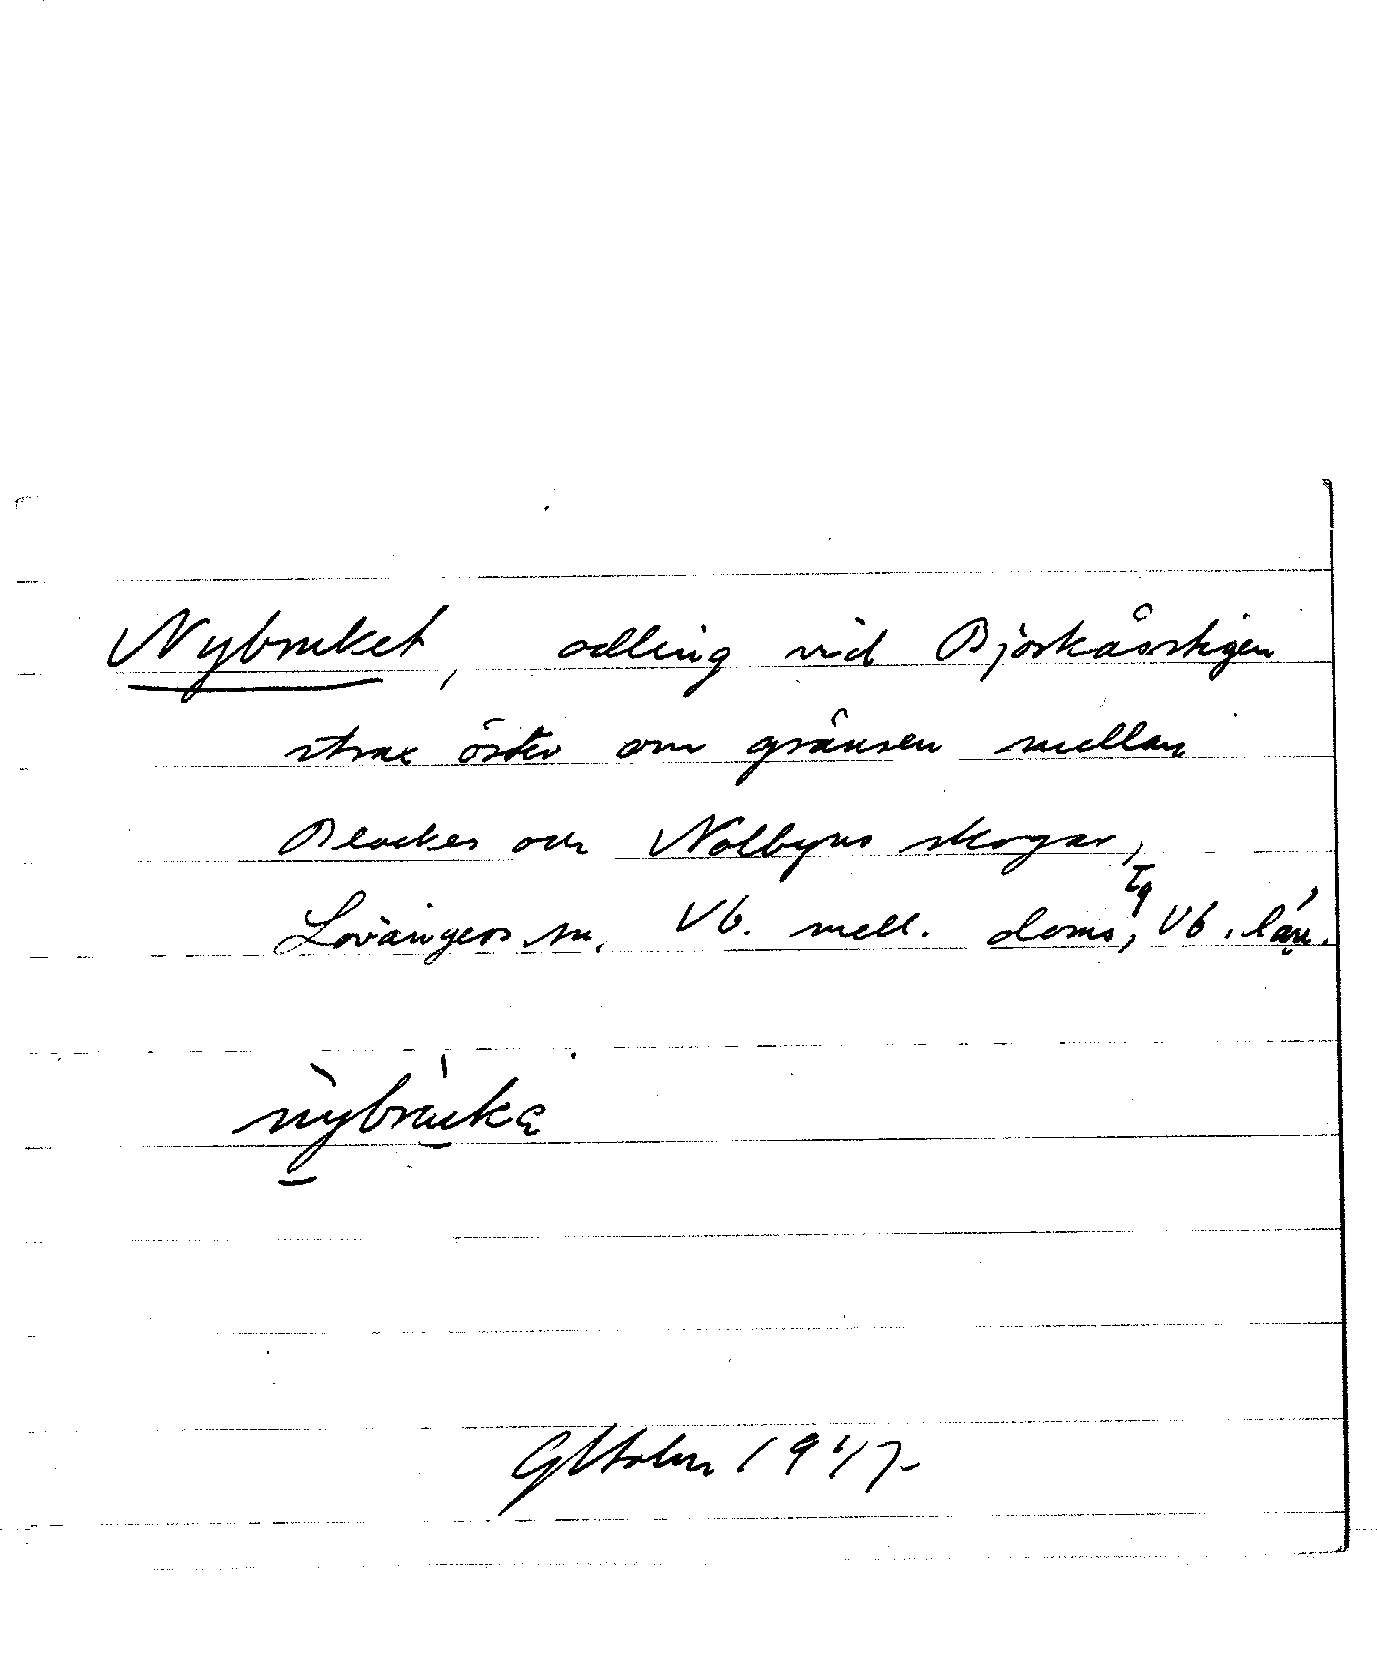 Nybruket, odling vid Björkåsstigen
strax öster om gränsen mellan
Blackes och Nolbyns skogar,
Lövångers sn. Vb. mell. doms, tg Vb. län.
nybruka
GHolm 1947